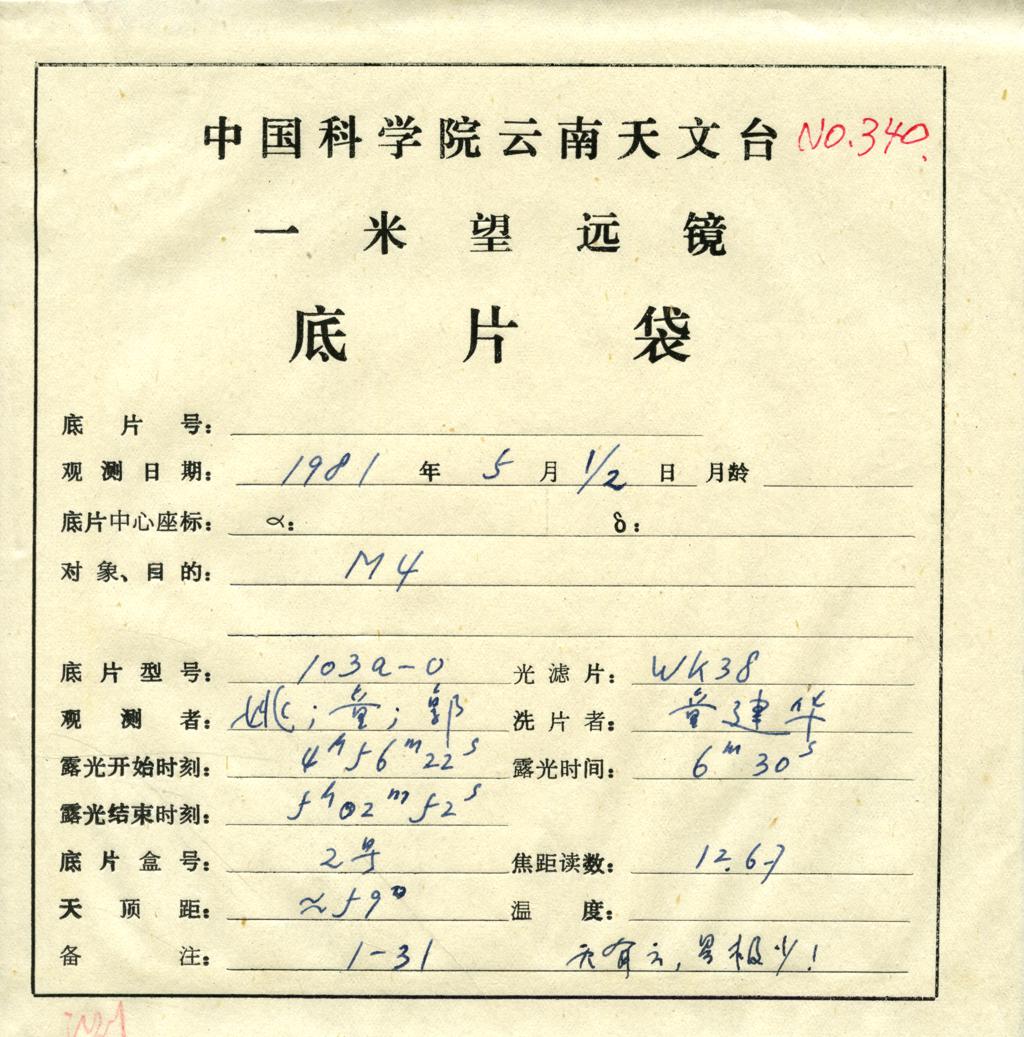 中国科学院云南天文台 NO.340.
一米望远镜
底片袋
底片号:
观测日期: 1981 年 5 月 1/2 日 月龄
底片中心座标: α: δ:
对象、目的: M4
底片型号: 103a-O 光滤片: WK38
观测者: 姚;童;郭 洗片者: 童建华
露光开始时刻: 4h56m22s 露光时间: 6m30s
露光结束时刻: 5h02m52s
底片盒号: 2号 焦距读数: 12.67
天顶距: ≈59° 温度:
备注: 1-31 天有云,星极少!